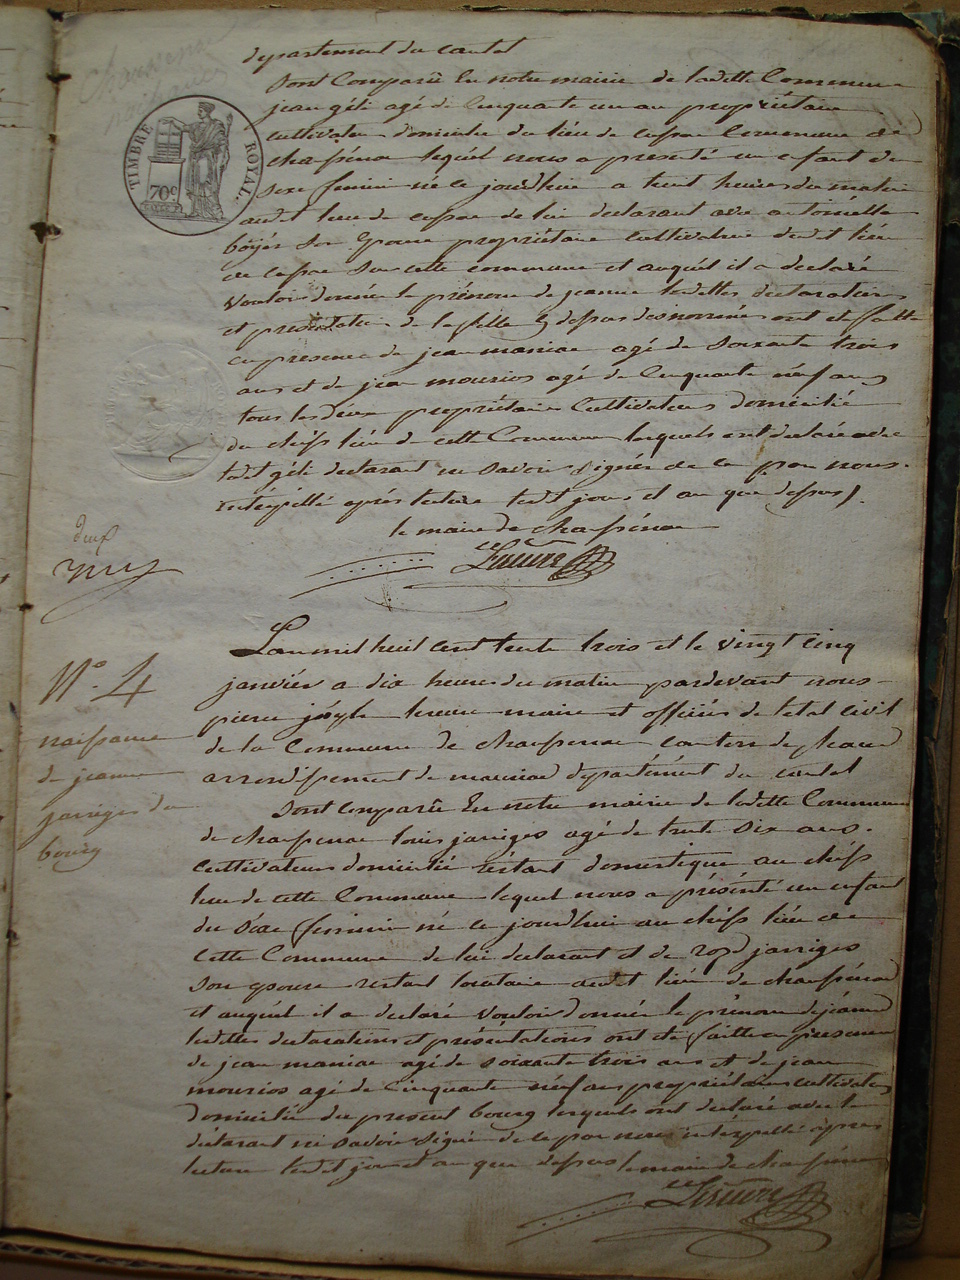 TIMBRE ROYAL.
70c
departement du cantal
Sont Comparû En notre mairie de ladette Commune
jean géli agé de Cinquante un an propriétaire
cultivateur domicilié du lieu de Commune de
lequel nous a presenté un enfant du
sexe feminin né ce jourd'hui a huit heures du matin
audit lieu de de lui declarant avec antoinette
boÿer son Epouse propriétaire cultivatrice dudit lieu
de sur cette commune et auquél il a declaré
vouloir donner le prénom de jeanne lesdettes declaration
et presentation de la fille denommé ont eté faitte
en presence de jean maniac agé de soixante trois
ans et de jean mourios agé de Cinquante néuf ans
tous les deux propriétaires Cultivateurs domicilié
du chéf lieu de cette Commune lesquels ont declaré avec
ledit géli declarant ne savoir signér de ce par nous
interpéllé aprés lecture ledit jour et an que dessus
le maire de chaussenac
deux
N°. 4
naissance
de jeanne
jarriges du
bourg
L'an mil huit cent trente trois et le vingt cinq
janvier a dix heures du matin pardevant nous
pierre joseph maire et officiér de l'etat civil
de la Commune de chaussenac canton de pleaux
arrondissement de mauriac département du cantal
Sont Comparû En notre mairie de ladette Commune
de chaussenac louis jarriges agé de trente six ans
cultivateur domicilié réstant doméstique au chéf
lieu de cette Commune lequel nous a présénté un enfant
du séxe feminin né ce jourdhui au chéf liéu de
cette Commune de lui declarant et de jarriges
son epouse restant locataire audit liéu de chaussénac
et auquél il a declaré vouloir donnér le prénom de jéanne
lesdettes declarations et présentations ont eté faitte en présence
de jean maniac agé de soixante trois ans et de jean
mourios agé de Cinquante néuf ans propriétaires cultivateurs
domicilié du présent bourg lesquels ont declaré avec le
déclarant ne savoir signer de ce par nous interpellé aprés
lecture ledit jour et an que dessus le maire de chaussénac